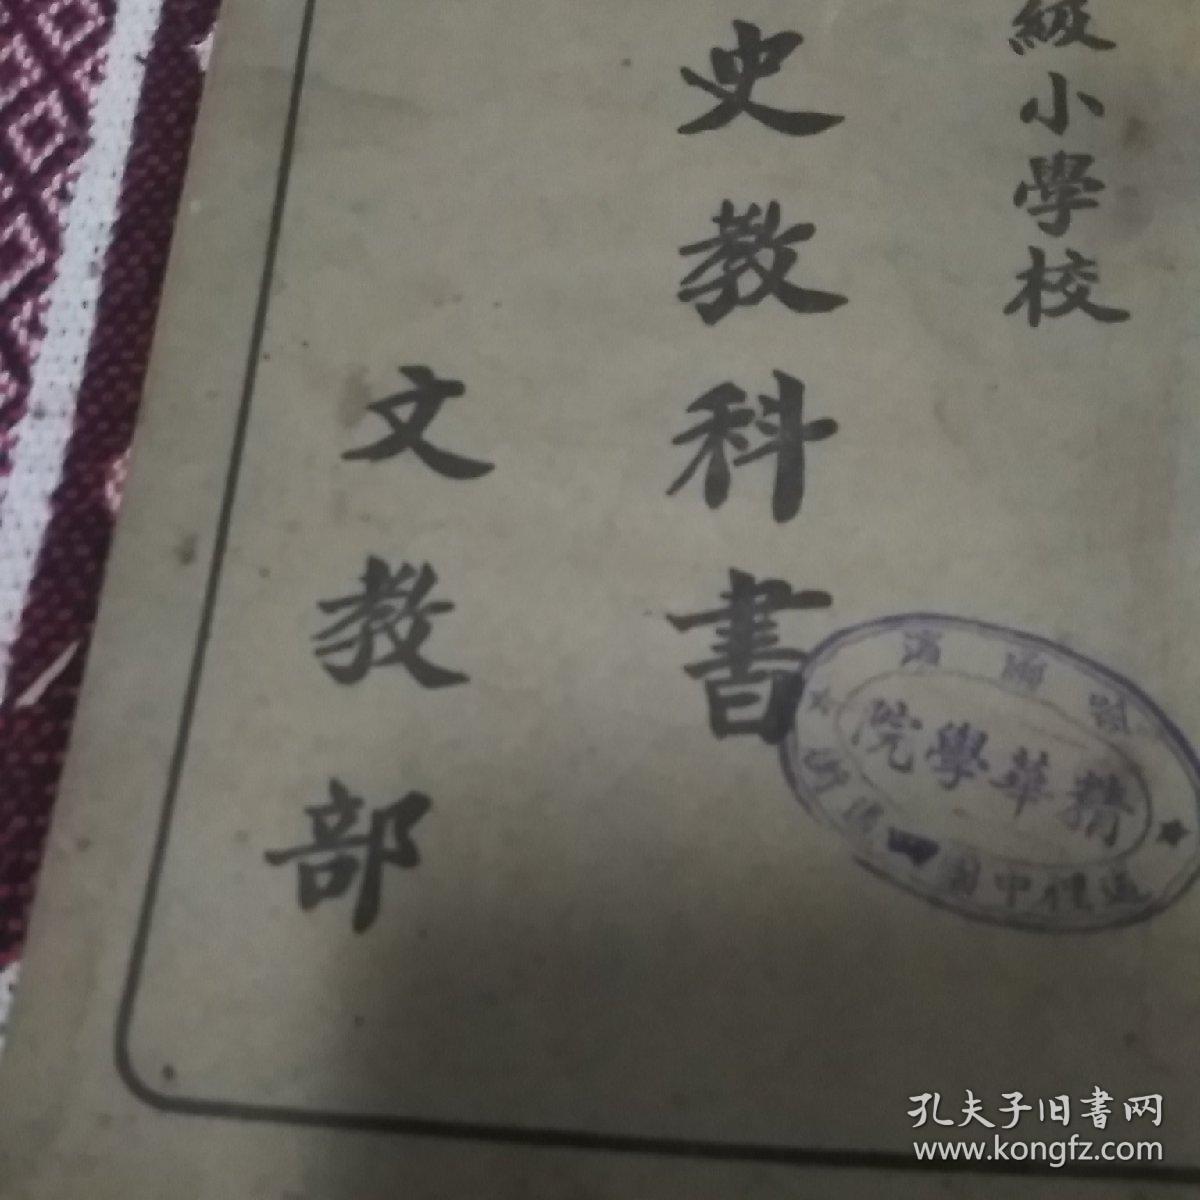 級小學校
史教科書
文教部
精華學院
孔夫子旧書网
www.kongfz.com